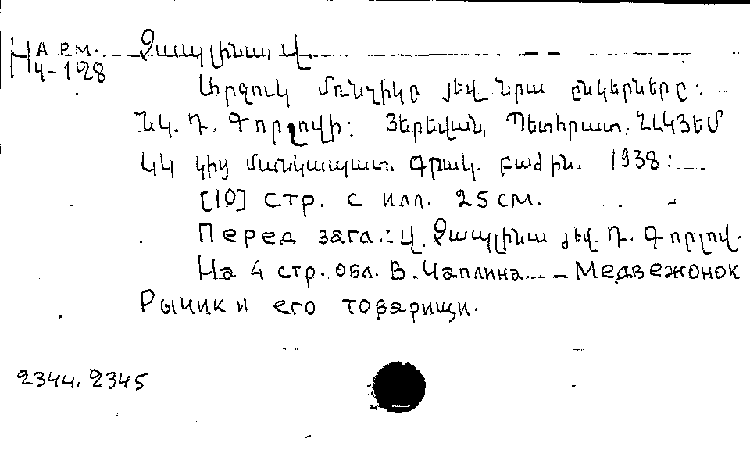 На рм. Չապլինա, Վ.
Ч-128
Արջուկ մռնչիկը յեվ նրա ընկերները:
Նկ. Դ. Գորլովի: Յերեվան, Պետհրատ. ՀԼԿՅԵՄ
ԿԿ կից մանկապատ. գրակ. բաժին. 1938:
[10] стр. с илл. 25 см.
Перед загл.: Վ. Չապլինա յեվ Դ. Գորլով.
На 4 стр. обл. В. Чаплина – Медвежонок
Рычик и его товарищи.
2344. 2345